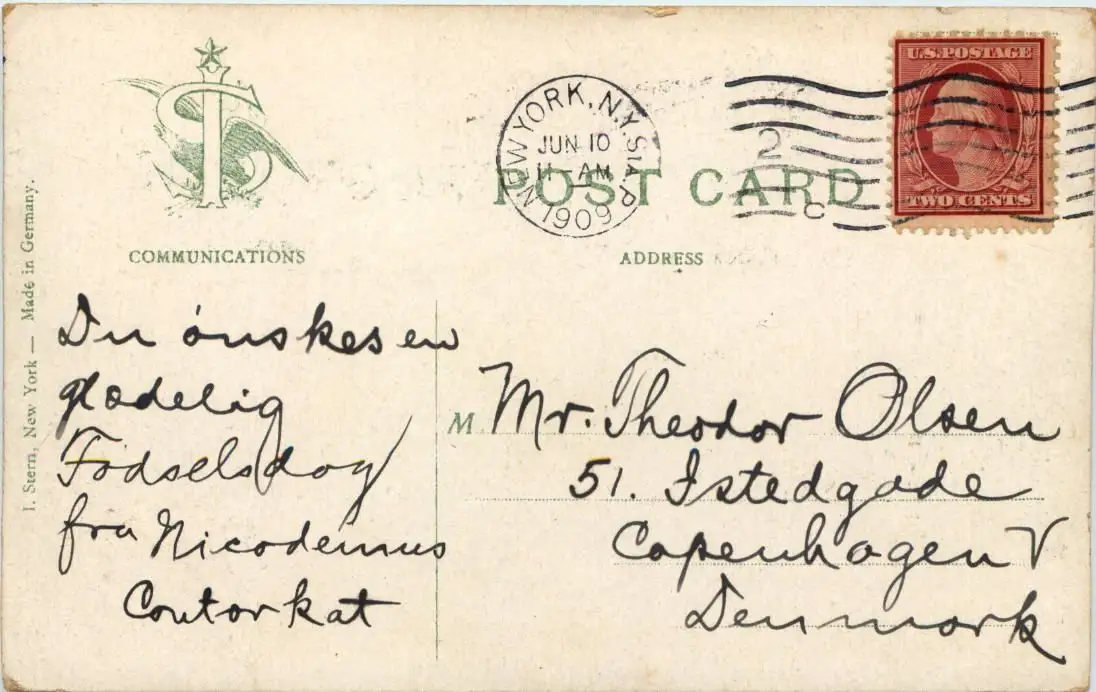 NEW YORK, N.Y. STA. P
JUN 10
11 AM
1909
U.S. POSTAGE
TWO CENTS
2
C
POST CARD
COMMUNICATIONS
ADDRESS
I. Stern, New York — Made in Germany.
Du ónskes en
glædelig
Fódselsdag
fra Nicodemus
Contorkat
M. Mr. Theodor Olsen
51. Istedgade
Copenhagen V
Denmark